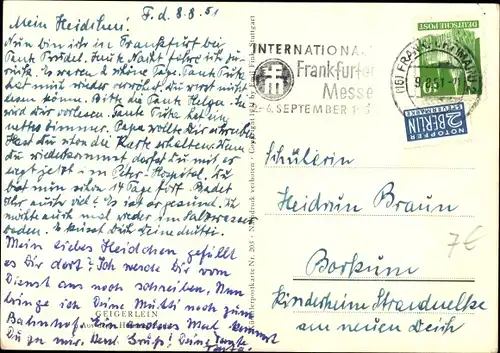 F. d. 8.8.51
Mein Heidilein!
Nun bin ich in Frankfurt bei
Tante Bridel. Heute Nacht fahre ich zu-
rück. Es waren 2 schöne Tage. Tante Tute
hat mich wieder verwöhnt, du wirst nicht
lesen können. Bitte die Tante Helga. Sie
wird dir vorlesen. Tante Tute hat ein
nettes Zimmer. Papa wollte dir schreiben.
Hast du schon die Karte erhalten? Wenn
du wiederkommst darfst du mit er
jetzt im Peter-Hospital. Du
bist nun schon 14 Tage fort. Badet
Ihr auch viel? Es ist so gesund. Ich
möchte auch mal wieder im Salzwasser
baden. Es küsst Dich Deine Mutti
Mein liebes Heidchen, gefällt
es Dir dort? Ich werde Dir vom
Dienst aus noch schreiben. Nun
bringe ich Deine Mutti noch zum
Bahnhof. Ein anderes Mal kommst
Du zu mir. Herzl. Grüße! Deine Tante
Tute.
GEIGERLEIN
INTERNATIONALE
Frankfurter
Messe
2.-6. SEPTEMBER 1951
(16) FRANKFURT (MAIN) 2
9.8.51
DEUTSCHE POST
10
NOTOPFER
2 BERLIN
STEUERMARKE
Schülerin
Heidrun Braun
Borkum
Kinderheim Strandnelke
am neuen Deich
7€